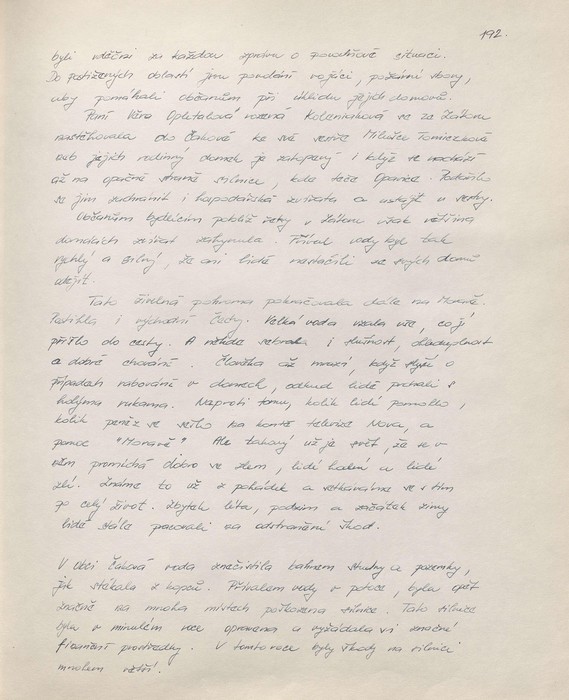 192.
byli vděčni za každou zprávu o povodňové situaci.
Do postižených oblastí jsou povoláni vojáci, požární sbory,
aby pomáhali občanům při úklidu jejich domovů.
Paní Věra Opletalová rozená se ze Zátoru
nastěhovala do Čakové ke své sestře Miluši Tomiczkové
neb jejich rodinný domek je zatopený i když se nachází
až na opačné straně silnice, kde teče Opavice. Podařilo
se jim zachránit i hospodářská zvířata a ustájit u sestry.
Občanům bydlícím poblíž řeky v Zátoru však většina
domácích zvířat zahynula. Příval vody byl tak
rychlý a silný, že ani lidé nestačili ze svých domů
utéct.
Tato živelná pohroma pokračovala dále na Moravě.
Postihla i východní Čechy. Velká voda vzala vše, co jí
přišlo do cesty. A někde sebrala i slušnost, ohleduplnost
a dobré chování. Člověka až mrazí, když slyší o
případech rabování v domech, odkud lidé prchali s
holýma rukama. Naproti tomu, kolik lidí pomohlo,
kolik peněz se sešlo na konto televize Nova, a
pomoc "Moravě"! Ale takový už je svět, že se v
něm promíchá dobro se zlem, lidé hodní a lidé
zlí. Známe to už z pohádek a setkáváme se s tím
po celý život. Zbytek léta, podzim a začátek zimy
lidé stále pracovali na odstranění škod.
V obci Čaková voda znečistila bahnem studny a pozemky,
jak stékala z kopců. Přívalem vody v potoce, byla opět
značně na mnoha místech poškozena silnice. Tato silnice
byla v minulém roce opravena a vyžádala si značné
finanční prostředky. V tomto roce byly škody na silnici
mnohem větší.